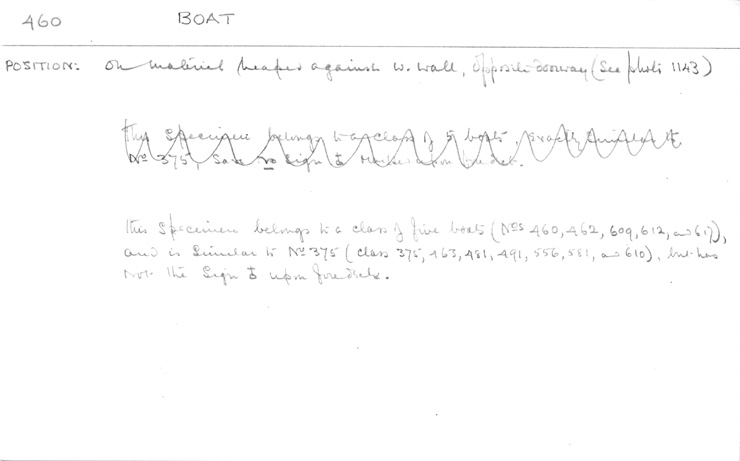 460 BOAT
POSITION: On material heaped against W. Wall, Opposite doorway (See photo 1143)
This Specimen belongs to a class of 5 boats, exactly similar to
Nº 375, Save no Sign upon
This Specimen belongs to a class of five boats (Nos 460, 462, 609, 612, and 617),
and is Similar to Nº 375 (class 375, 463, 481, 491, 556, 581, and 610), but has
not the Sign upon foredeck.